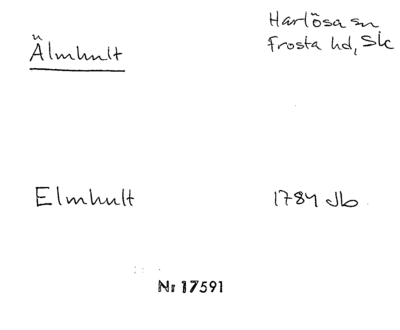 Älmhult
Harlösa sn
Frosta hd, Sk
Elmhult
1784 Jb
Nr 17591